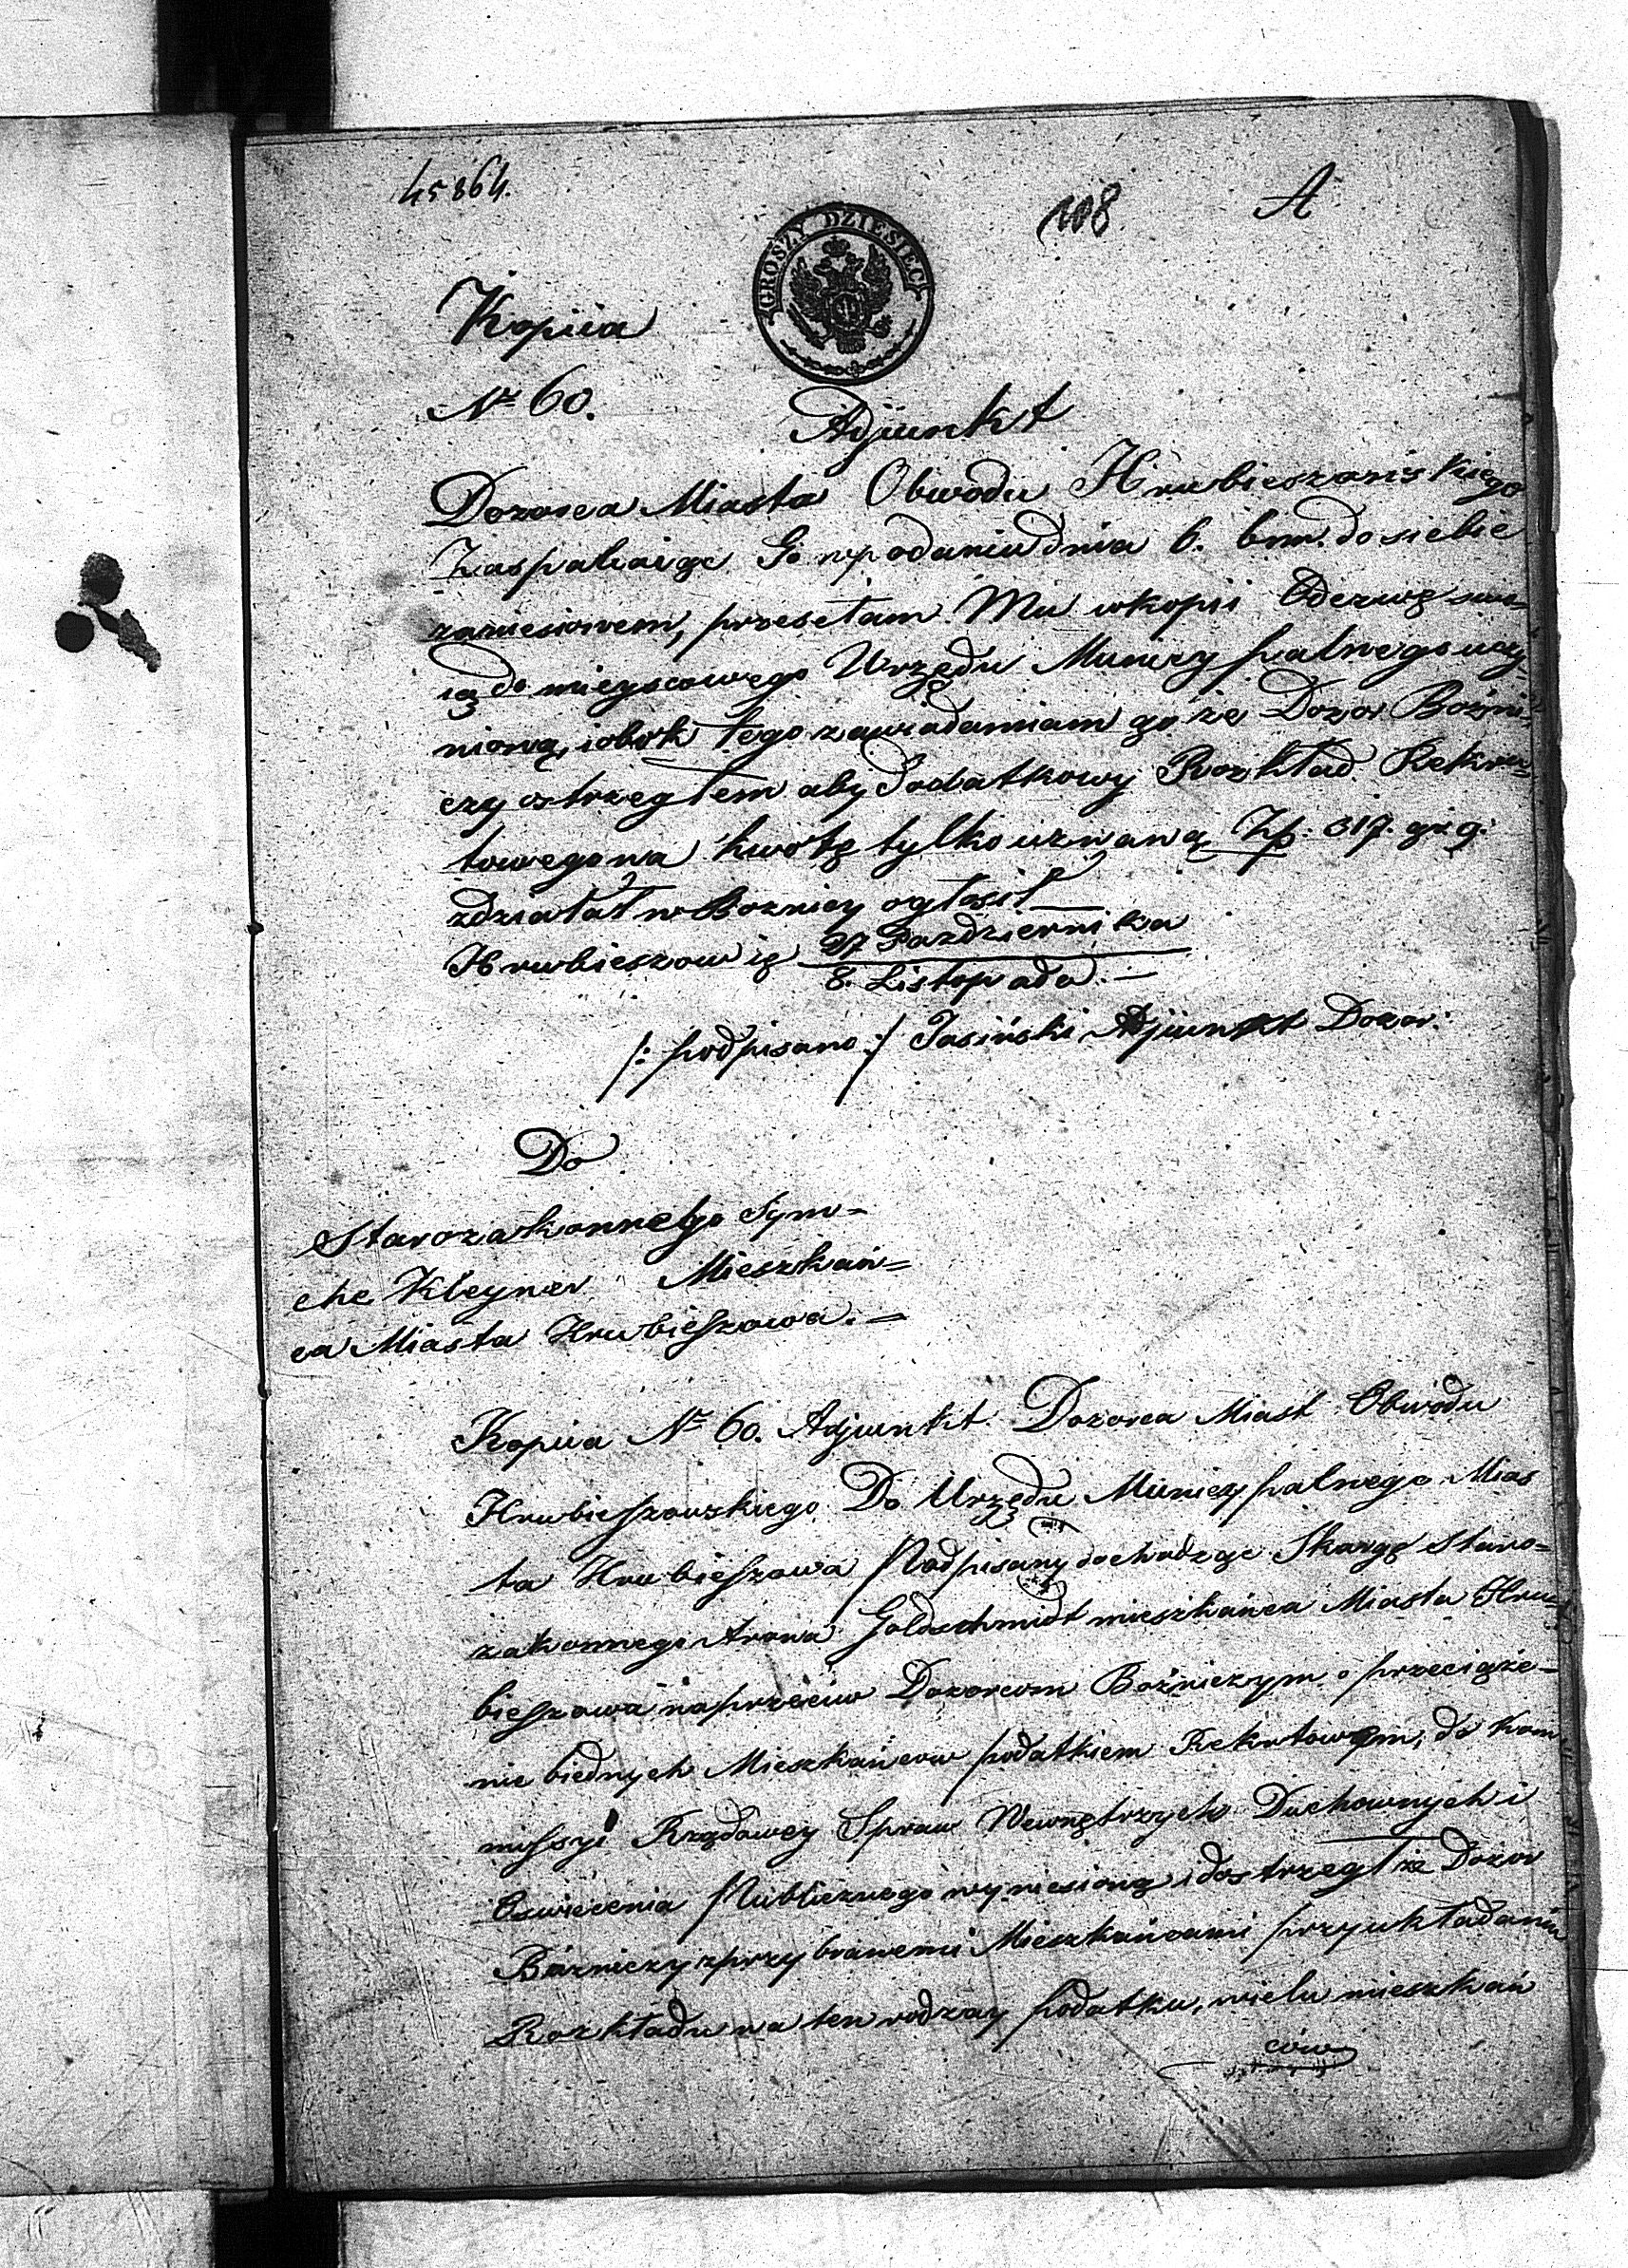 45864.
108
A
GROSZY DZIESIĘĆ
Kopiia
Nr 60.
Adjunkt
Dozorca Miasta Obwodu Hrubieszowskiego
Zaspakaiąc Go w podaniu dnia 6. bm. do siebie
zaniesionem, przesełam Mu w kopii Odezwę swo=
ią do mieyscowego Urzędu Municypalnego uczy
nioną, i obok tego zawiadamiam go że Dozor Bożni=
czy ostrzegłem aby dodatkowy Rozkład Rekru=
towego na kwotę tylko uznaną Zp: 317. gr 9.
zdziałał w Bożnicy ogłosił
Hrubieszowie 27 Pazdziernika
8. Listopada. —
/: podpisano :/ Jasiński Adjunkt Dozor:
Do
Starozakonnego Sym=
che Kleyner Mieszkań=
ca Miasta Hrubieszowa. =
Kopiia Nr 60. Adjunkt Dozorca Miast Obwodu
Hrubieszowskiego Do Urzędu Municypalnego Mias
ta Hrubieszowa Podpisany dochodząc Skargę Staro=
zakonnego Arona Goldschmidt mieszkańca Miasta Hru=
bieszowa naprzeciw Dozorcom Bożniczym o przeciąże=
nie biednych Mieszkańcow podatkiem Rekrutowym, do Kom
missyi Rządowey Spraw Wewnętrzych Duchownych i
Oswiecenia Publicznego wyniesioną, dostrzegł że Dozor
Bożniczy z przybranemi Mieszkańcami przy układaniu
Rozkładu na ten rodzay podatku, wielu mieszkań
ców